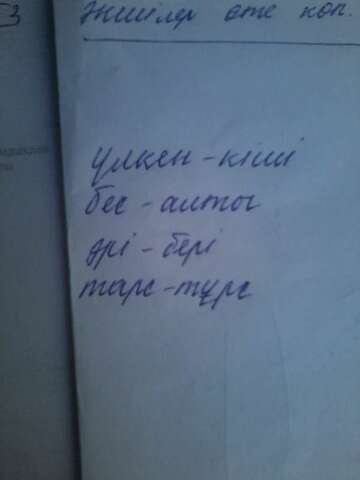 3
жиілер өте көп.
үлкен - кіші
бес - алты
әрі - бері
тарс - тұрс